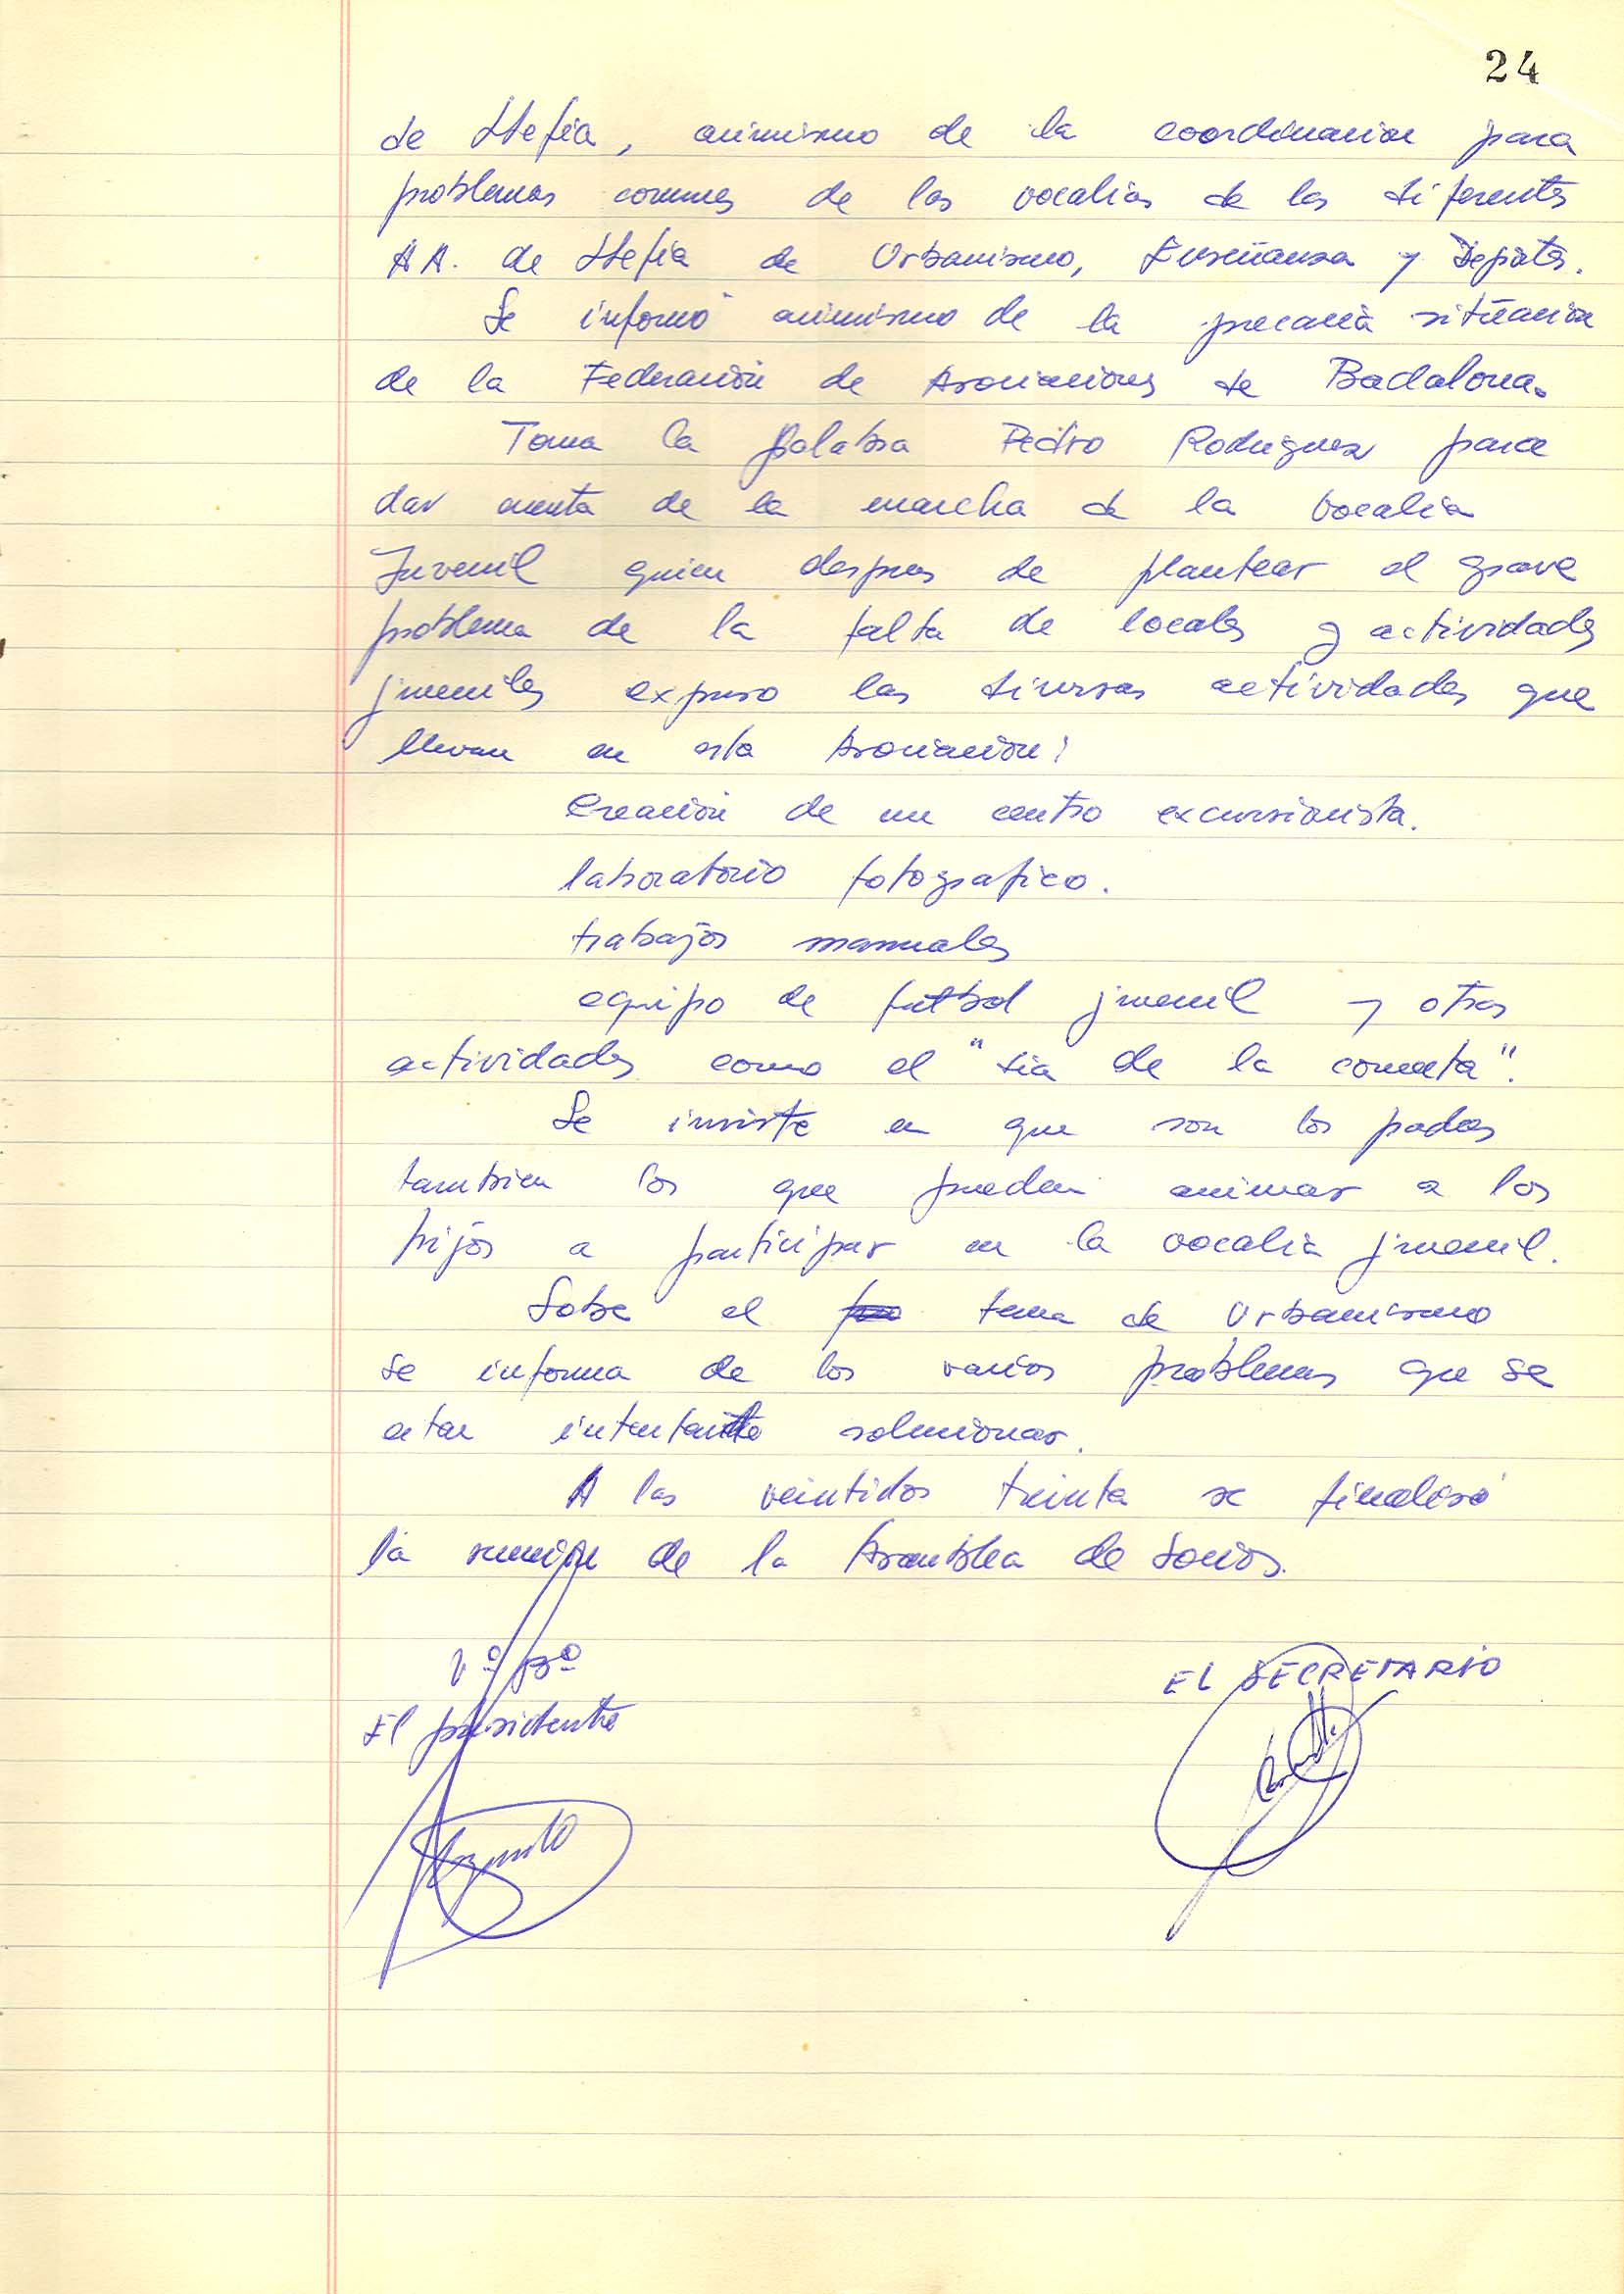 24
de Llefia, asimismo de la coordinacion para
problemas comunes de las vocalias de las diferentes
AA. de Llefia de Urbanismo, Enseñanza y Deportes.
Se informó asimismo de la precaria situacion
de la Federación de Asociaciones de Badalona.
Toma la palabra Pedro Rodriguez para
dar cuenta de la marcha de la Vocalia
Juvenil quien despues de plantear el grave
problema de la falta de locales y actividades
juveniles expuso las diversas actividades que
llevan en esta Asociación:
Creación de un centro excursionista.
laboratorio fotografico.
trabajos manuales
equipo de futbol juvenil y otras
actividades como el "dia de la cometa".
Se insiste en que son los padres
tambien los que pueden animar a los
hijos a participar en la vocalia juvenil.
Sobre el tema de Urbanismo
se informa de los varios problemas que se
estan intentando solucionar.
A las veintidos treinta se finalizó
la reunión de la Asamblea de Socios.
Vº Bº
El presidente
EL SECRETARIO